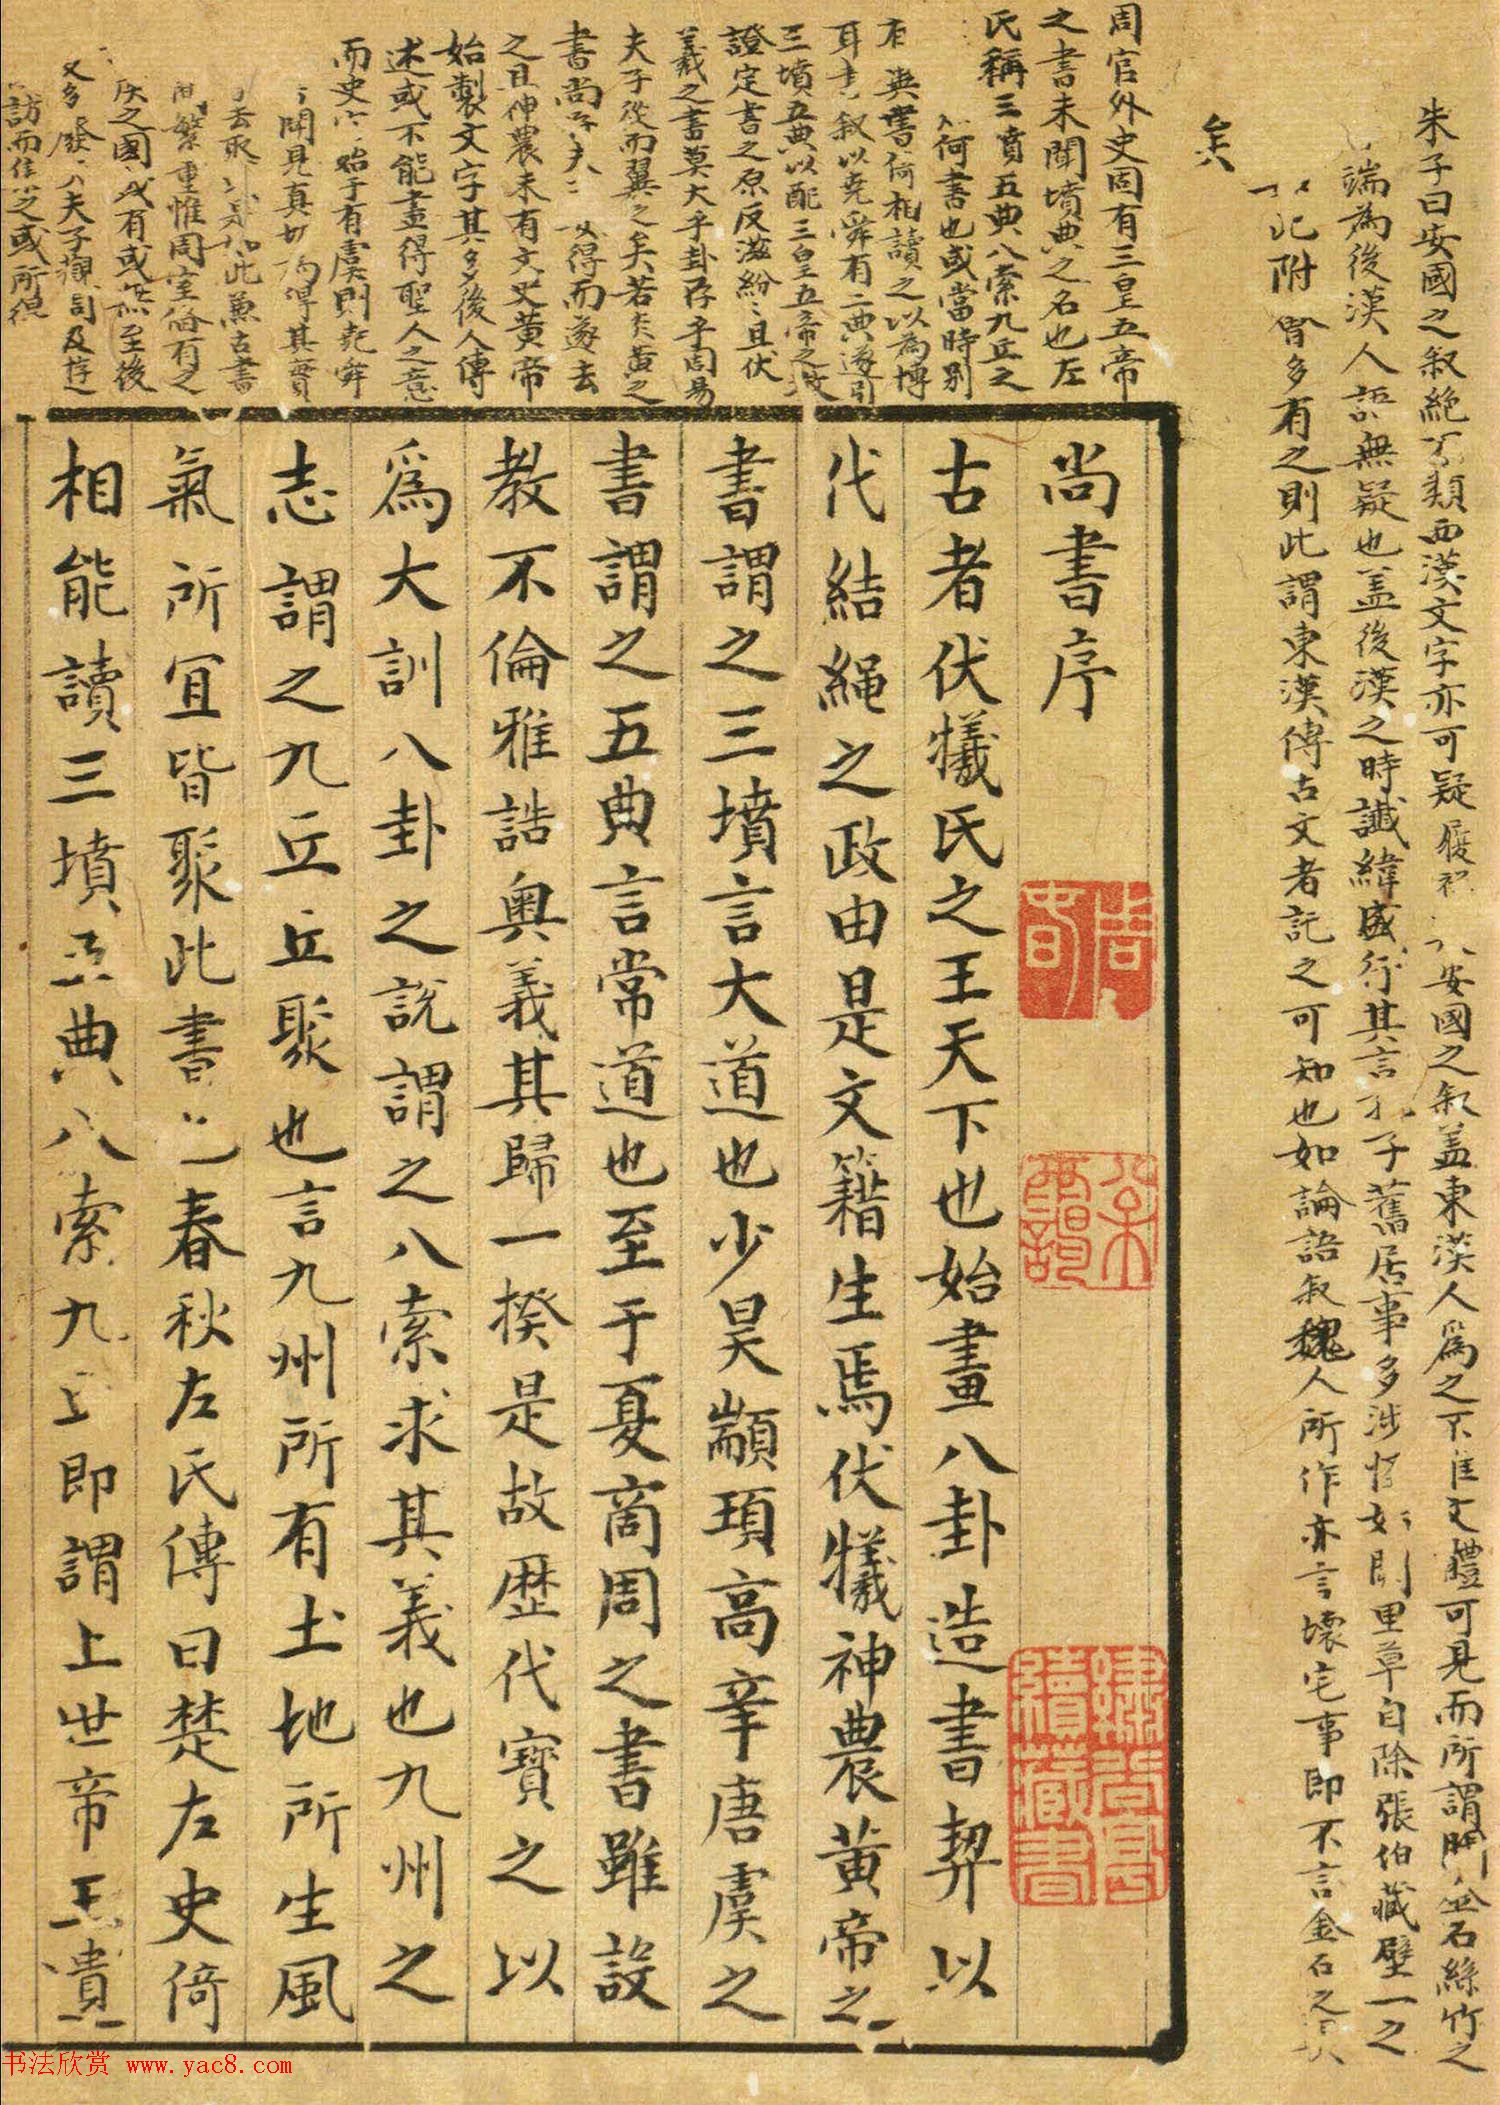 朱子曰安國之叙絶不類西漢文字亦可疑安國之叙盖東漢人爲之不惟文體可見而所謂金石絲竹之
端為後漢人語無疑也盖後漢之時讖緯盛行其言孔子舊居事多涉如則里草自除張伯藏壁一之
此附會多有之則此謂東漢傳古文者託之可知也如論語叙魏人所作亦言壞宅事即不言金石之
矣
周官外史固有三皇五帝
之書未聞墳典之名也左
氏稱三墳五典八索九丘之
何書也或當時別
有典書倚相讀之以為博
耳叙以堯舜有二典遂引
三墳五典以配三皇五帝之
證定書之原反滋紛且伏
羲之書莫大乎卦存乎周易
夫子從而翼之矣若炎黃之
書尚夫得而遂去
之且神農未有文史黃帝
始製文字其多後人傳
述或不能盡得聖人之意
而史始于有虞則堯舜
開見真得其實
去取此萬古書
繁重惟周室備有之
之國或有或無至後
又多廢夫子觀周及
訪而之或所得
尚書序
古者伏犧氏之王天下也始畫八卦造書契以
代結繩之政由是文籍生焉伏犧神農黃帝之
書謂之三墳言大道也少昊顓頊高辛唐虞之
書謂之五典言常道也至于夏商周之書雖設
教不倫雅誥奧義其歸一揆是故歷代寶之以
爲大訓八卦之說謂之八索求其義也九州之
志謂之九丘丘聚也言九州所有土地所生風
氣所宜皆聚此書也春秋左氏傳曰楚左史倚
相能讀三墳五典八索九丘即謂上世帝王遺
书法欣赏 www.yac8.com